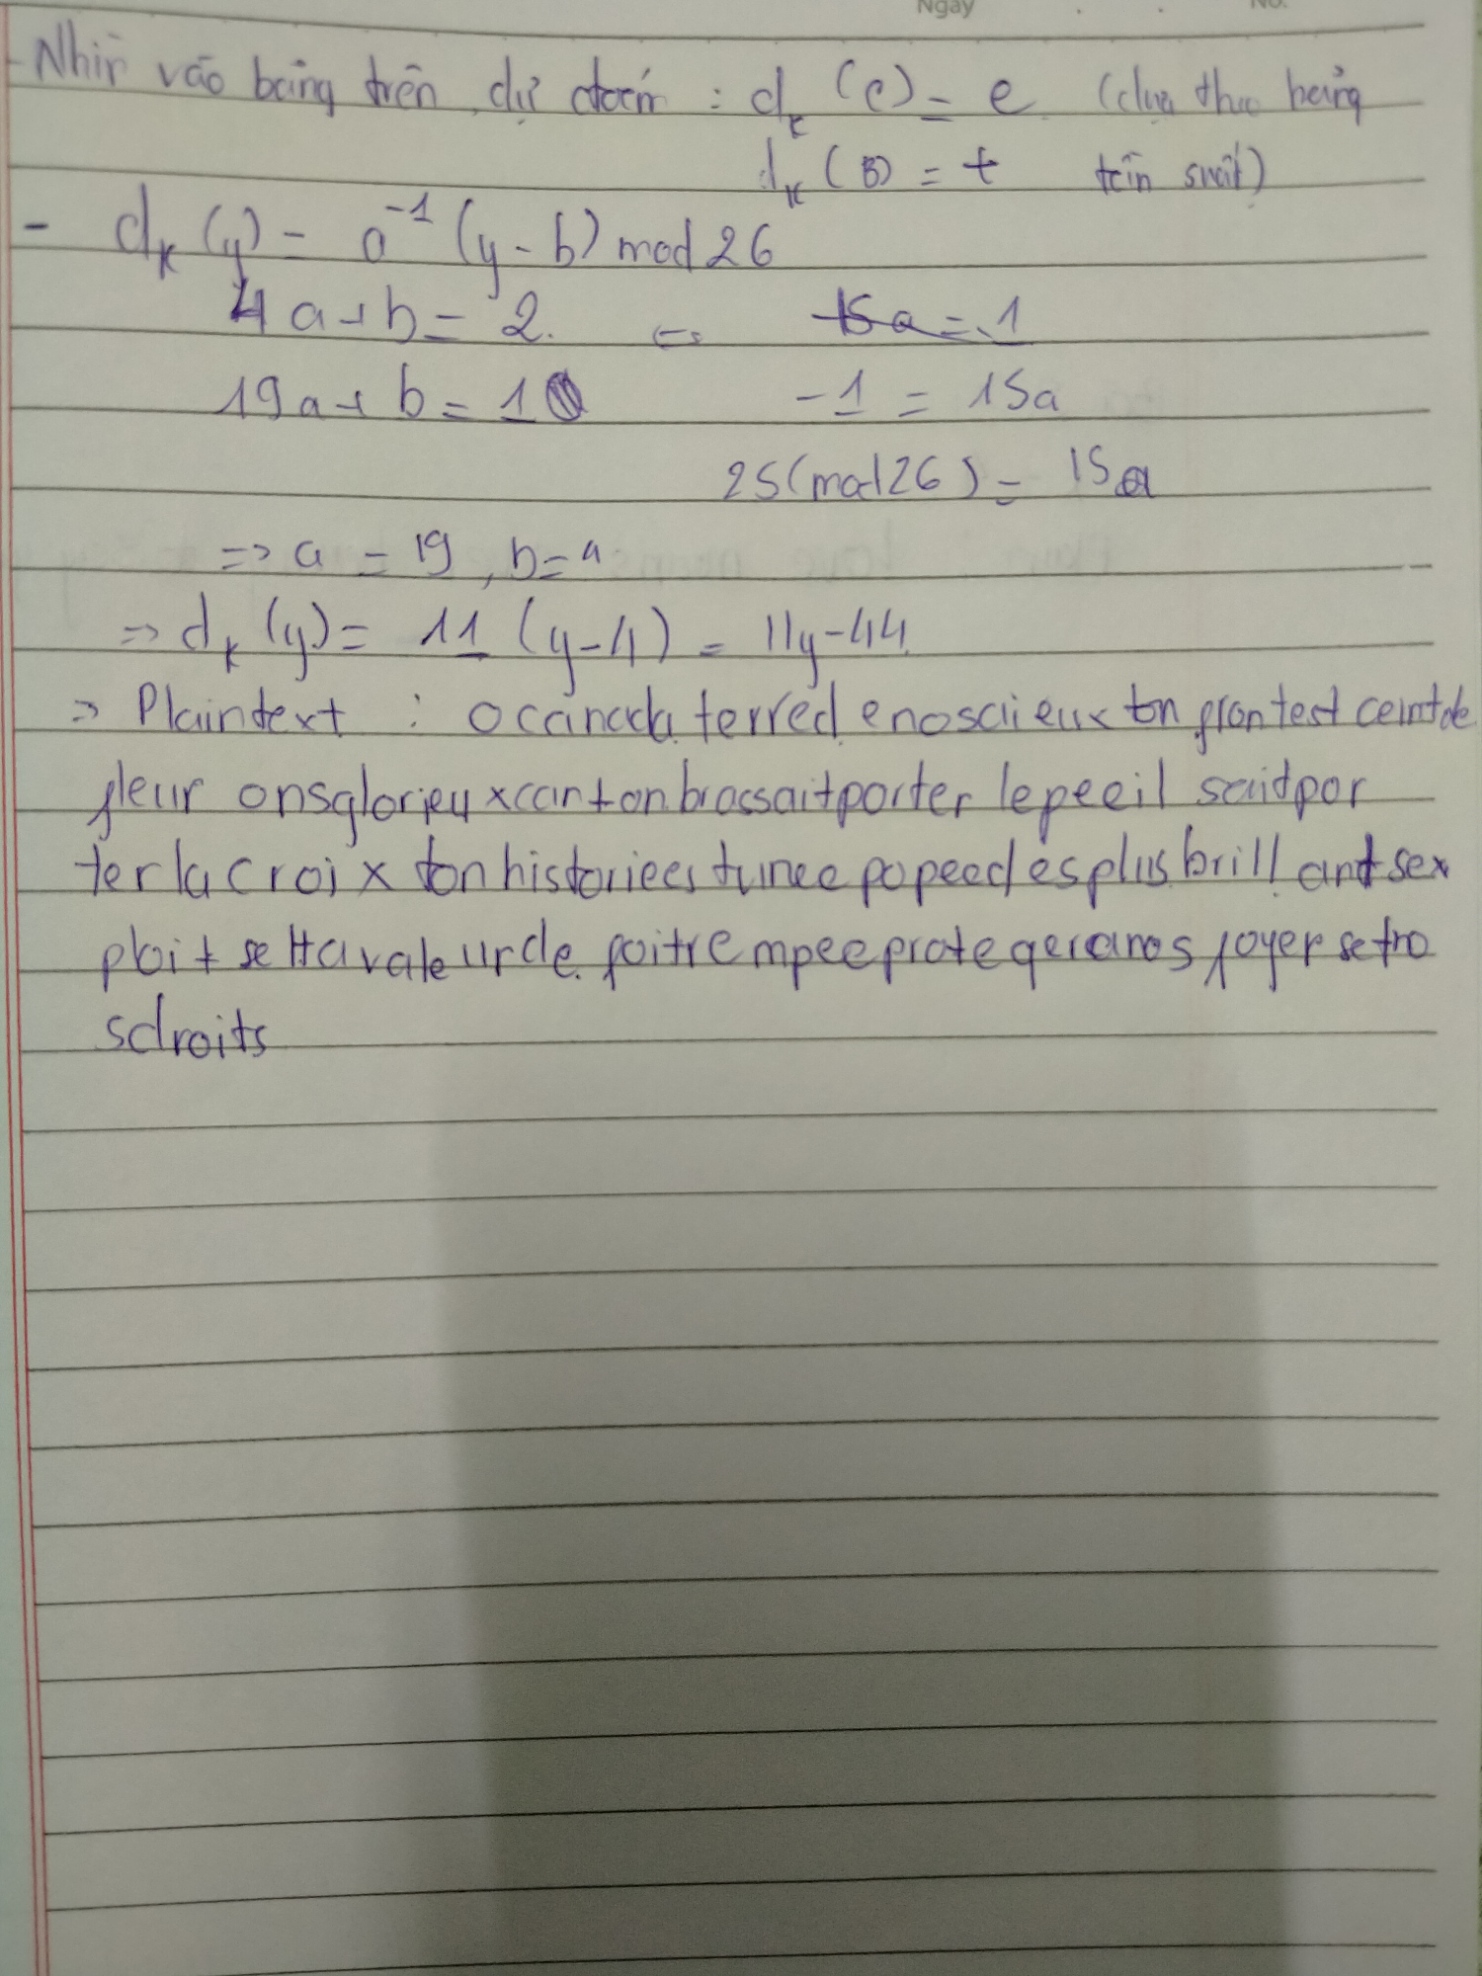 Ngày No.
- Nhìn vào bảng trên, dự đoán : dₖ (C) = e (dựa theo bảng
dₖ (B) = t tần suất)
- dₖ (y) = a⁻¹ (y - b) mod 26
4a + b = 2. ⇔ 15a = -1
19a + b = 1 -1 = 15a
25 (mod 26) = 15a
=> a = 19, b = 4
=> dₖ (y) = 11 (y - 4) = 11y - 44.
=> Plaintext : ocanada terred enosaieux ton front est ceintde
fleur onsglorieu xcar ton brassait porter lepeeil saitpor
ter la croi x ton histoirees tunee popeed esplus brill ant sex
ploit se tta vale ur de foi tre mpee prote geranos foyer se tno
sdroits